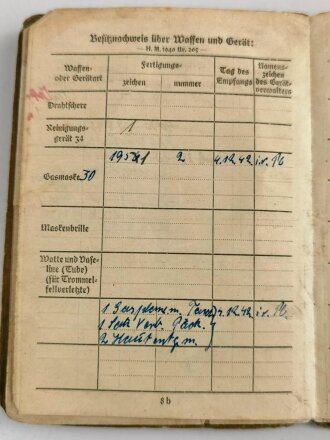 Besitznachweis über Waffen und Gerät:
— H. M. 1940 Nr. 265 —
Waffen- oder Gerätart
Fertigungs-
zeichen nummer
Tag des Empfangs
Namens-zeichen des Gerät-verwalters
Drahtschere
Reinigungs-gerät 34 1
Gasmaske 30 2 4.12.42 i.V.
Maskenbrille
Watte und Vase-line (Tube) (für Trommel-fellverletzte)
1 m. 4.12.42 i.V.
1 Verb. Päck.
2 Hautentg. m.
8b